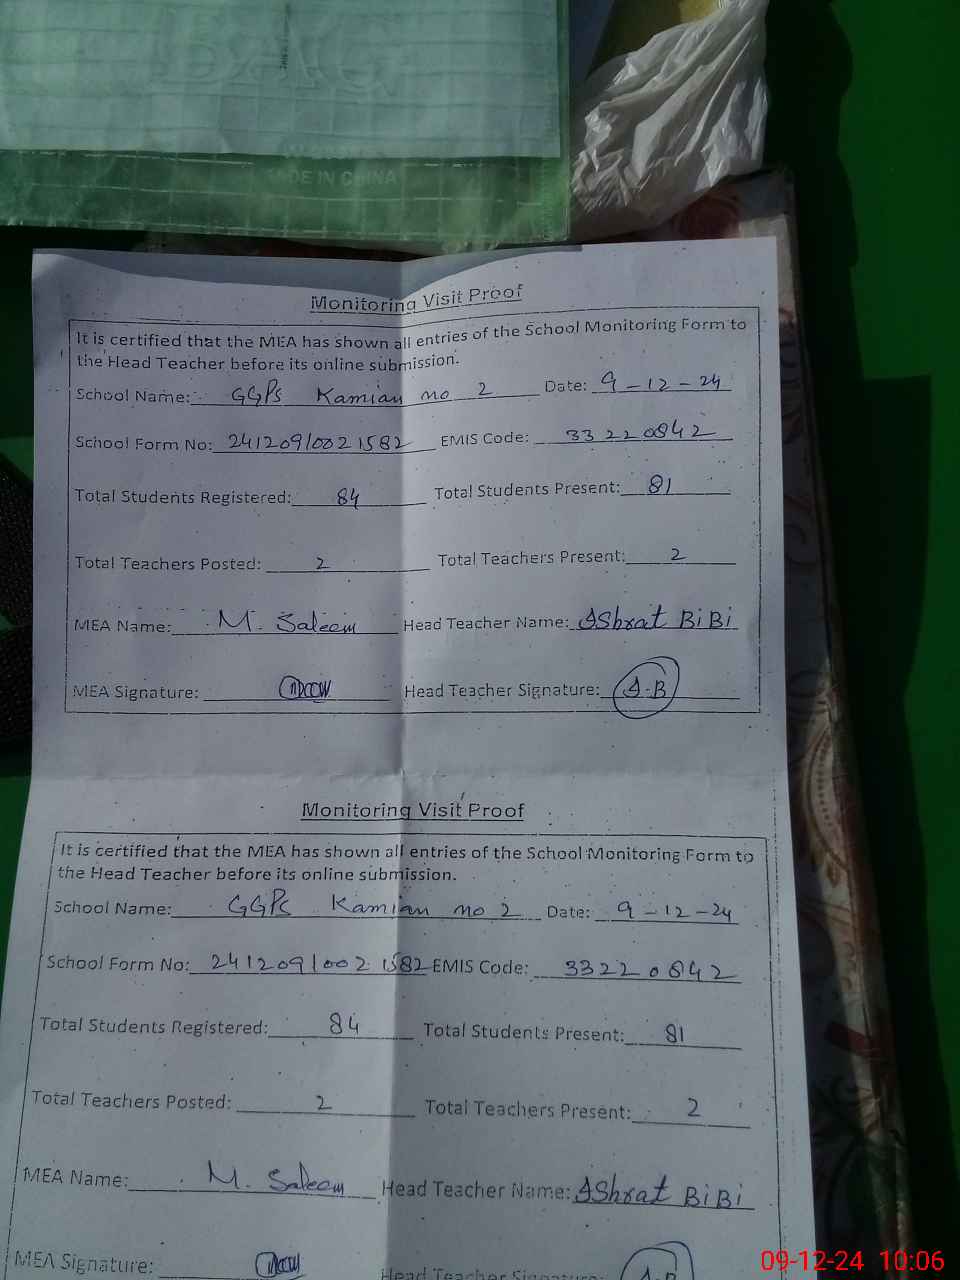 BAG
MADE IN CHINA
Monitoring Visit Proof
It is certified that the MEA has shown all entries of the School Monitoring Form to
the Head Teacher before its online submission.
School Name: GGPS Kamian no 2 Date: 9-12-24
School Form No: 2412091002 1582 EMIS Code: 33220842
Total Students Registered: 84 Total Students Present: 81
Total Teachers Posted: 2 Total Teachers Present: 2
MEA Name: M. Saleem Head Teacher Name: AShrat BiBi
MEA Signature: Head Teacher Signature: A.B
Monitoring Visit Proof
It is certified that the MEA has shown all entries of the School Monitoring Form to
the Head Teacher before its online submission.
School Name: GGPS Kamian no 2 Date: 9-12-24
School Form No: 2412091002 1582 EMIS Code: 33220842
Total Students Registered: 84 Total Students Present: 81
Total Teachers Posted: 2 Total Teachers Present: 2
MEA Name: M. Saleem Head Teacher Name: AShrat BiBi
MEA Signature: Head Teacher Signature: A.B
09-12-24 10:06